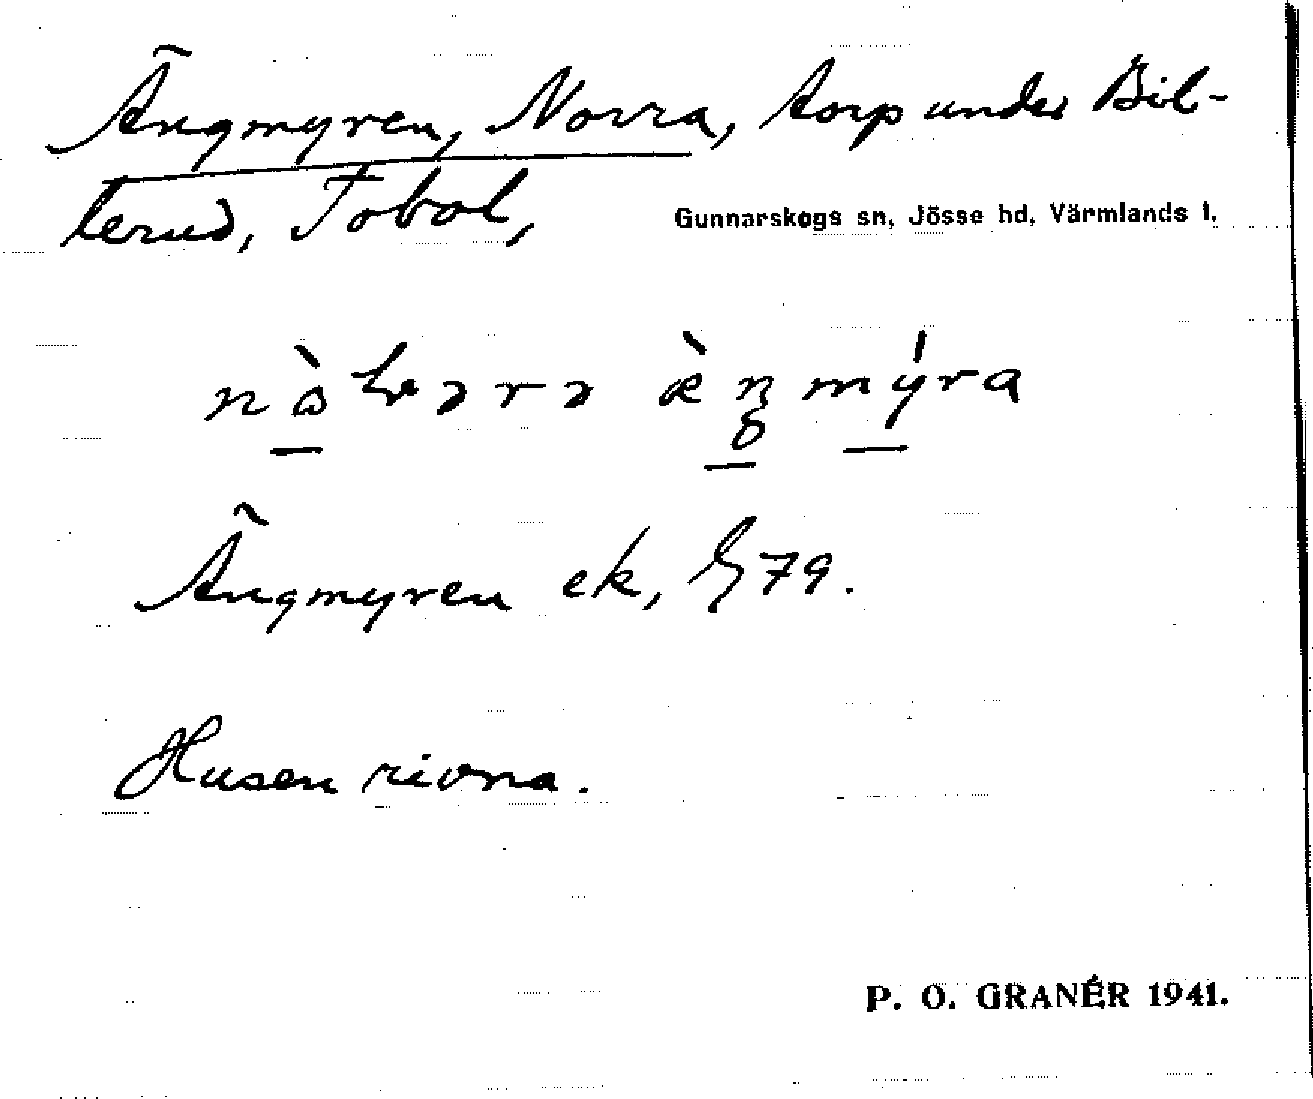 Ängmyren, Norra, torp under Bil-
terud, Tobol,
Gunnarskogs sn, Jösse hd, Värmlands l.
Ängmyren ek, G 79.
Husen rivna.
P. O. GRANÉR 1941.